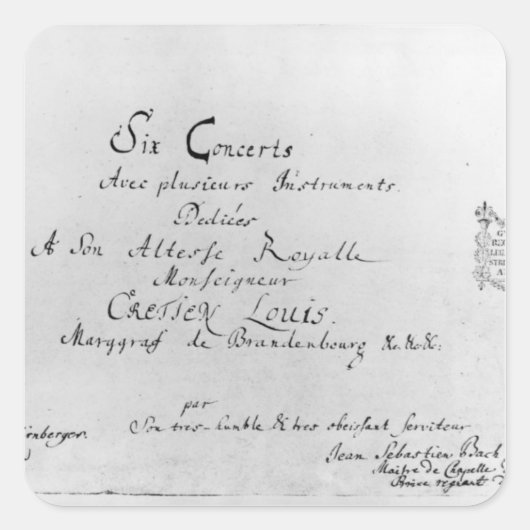 Six Concerts
Avec plusieurs Instruments.
Dediées
A Son Altesse Royalle
Monseigneur
CRETIEN LOUIS.
Marggraf de Brandenbourg &c.&c.&c:
par
Son tres-humble & tres obeissant serviteur
Jean Sebastien Bach
Maitre de Chapelle
Prince regnant